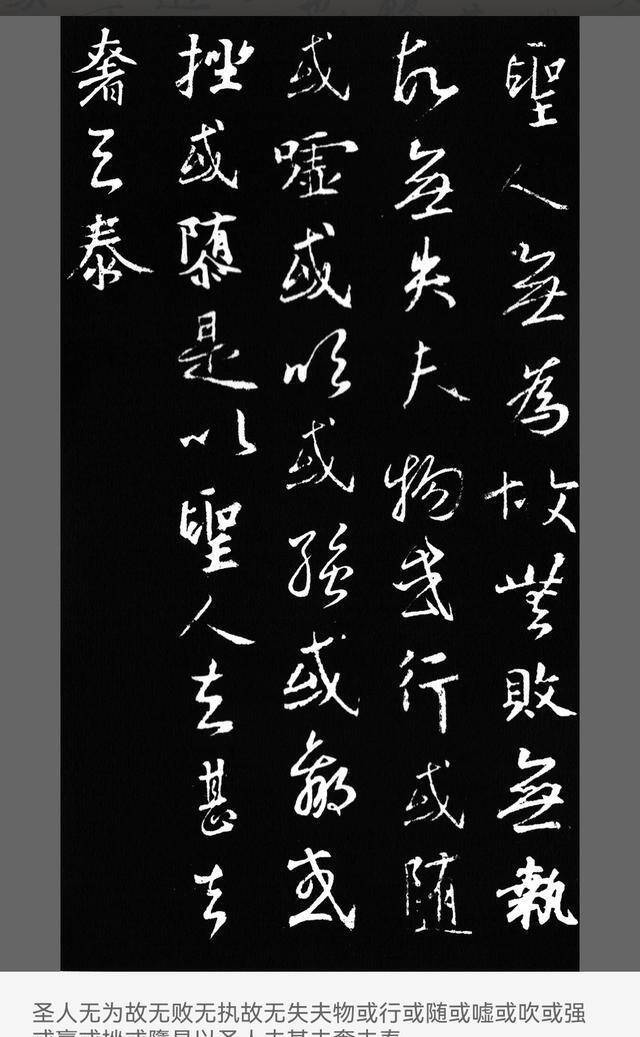 聖人無為故無敗無執
故無失夫物或行或隨
或噓或吹或強或羸或
挫或隳是以聖人去甚去
奢去泰
圣人无为故无败无执故无失夫物或行或随或嘘或吹或强
或羸或挫或隳是以圣人去甚去奢去泰